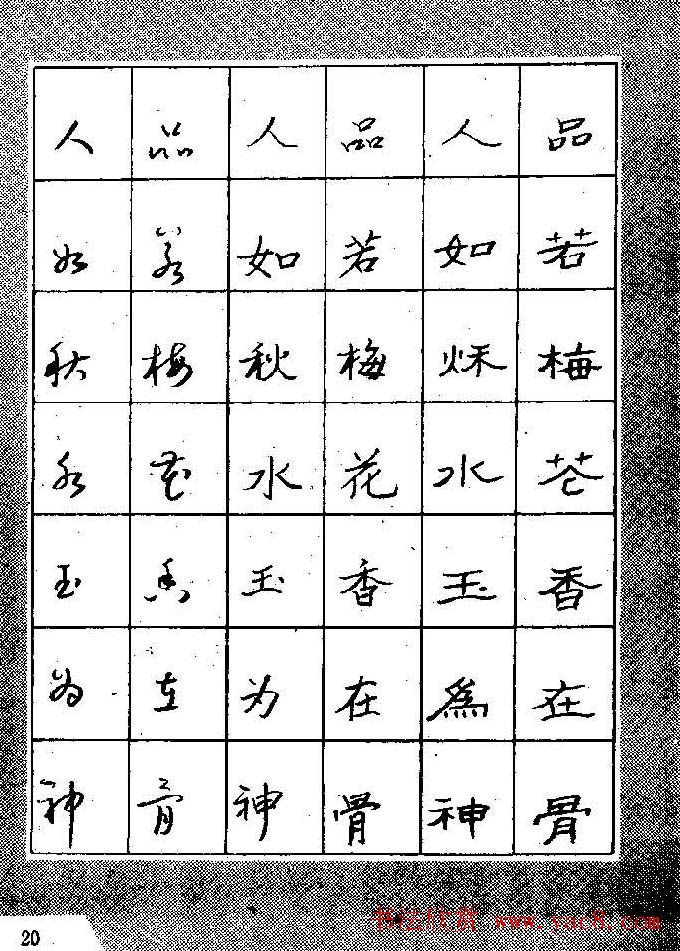 品若梅芲香在骨
人如秌水玉為神
品若梅花香在骨
人如秋水玉为神
品若梅花香在骨
人如秋水玉为神
20
书法欣赏 www.yac8.com